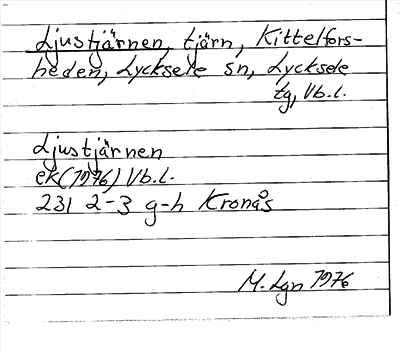 Ljustjärnen, tjärn, Kittelfors-
heden, Lycksele sn, Lycksele
tg, Vb.l.
Ljustjärnen
ek(1976) Vb.l.
231 2-3 g-h Kronås
M. Lgn 1976